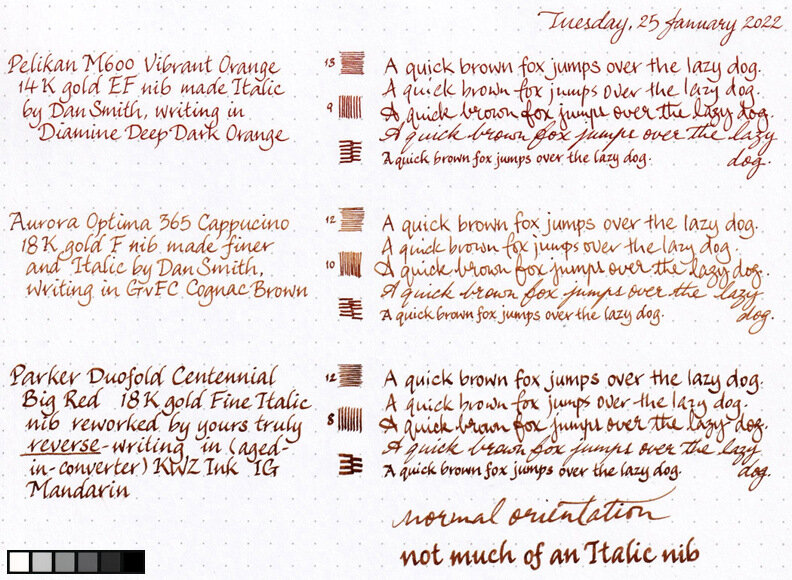 Tuesday, 25 January 2022
Pelikan M600 Vibrant Orange
14K gold EF nib made Italic
by Dan Smith, writing in
Diamine Deep Dark Orange
13
9
A quick brown fox jumps over the lazy dog.
A quick brown fox jumps over the lazy dog.
A quick brown fox jumps over the lazy dog.
A quick brown fox jumps over the lazy
dog.
A quick brown fox jumps over the lazy dog.
Aurora Optima 365 Cappucino
18K gold F nib made finer
and Italic by Dan Smith,
writing in GvFC Cognac Brown
12
10
A quick brown fox jumps over the lazy dog.
A quick brown fox jumps over the lazy dog.
A quick brown fox jumps over the lazy dog.
A quick brown fox jumps over the lazy
dog.
A quick brown fox jumps over the lazy dog.
Parker Duofold Centennial
Big Red 18K gold Fine Italic
nib reworked by yours truly
reverse-writing in (aged-
in-converter) KWZ Ink IG
Mandarin
12
8
A quick brown fox jumps over the lazy dog.
A quick brown fox jumps over the lazy dog.
A quick brown fox jumps over the lazy dog.
A quick brown fox jumps over the lazy
dog.
A quick brown fox jumps over the lazy dog.
normal orientation
not much of an Italic nib